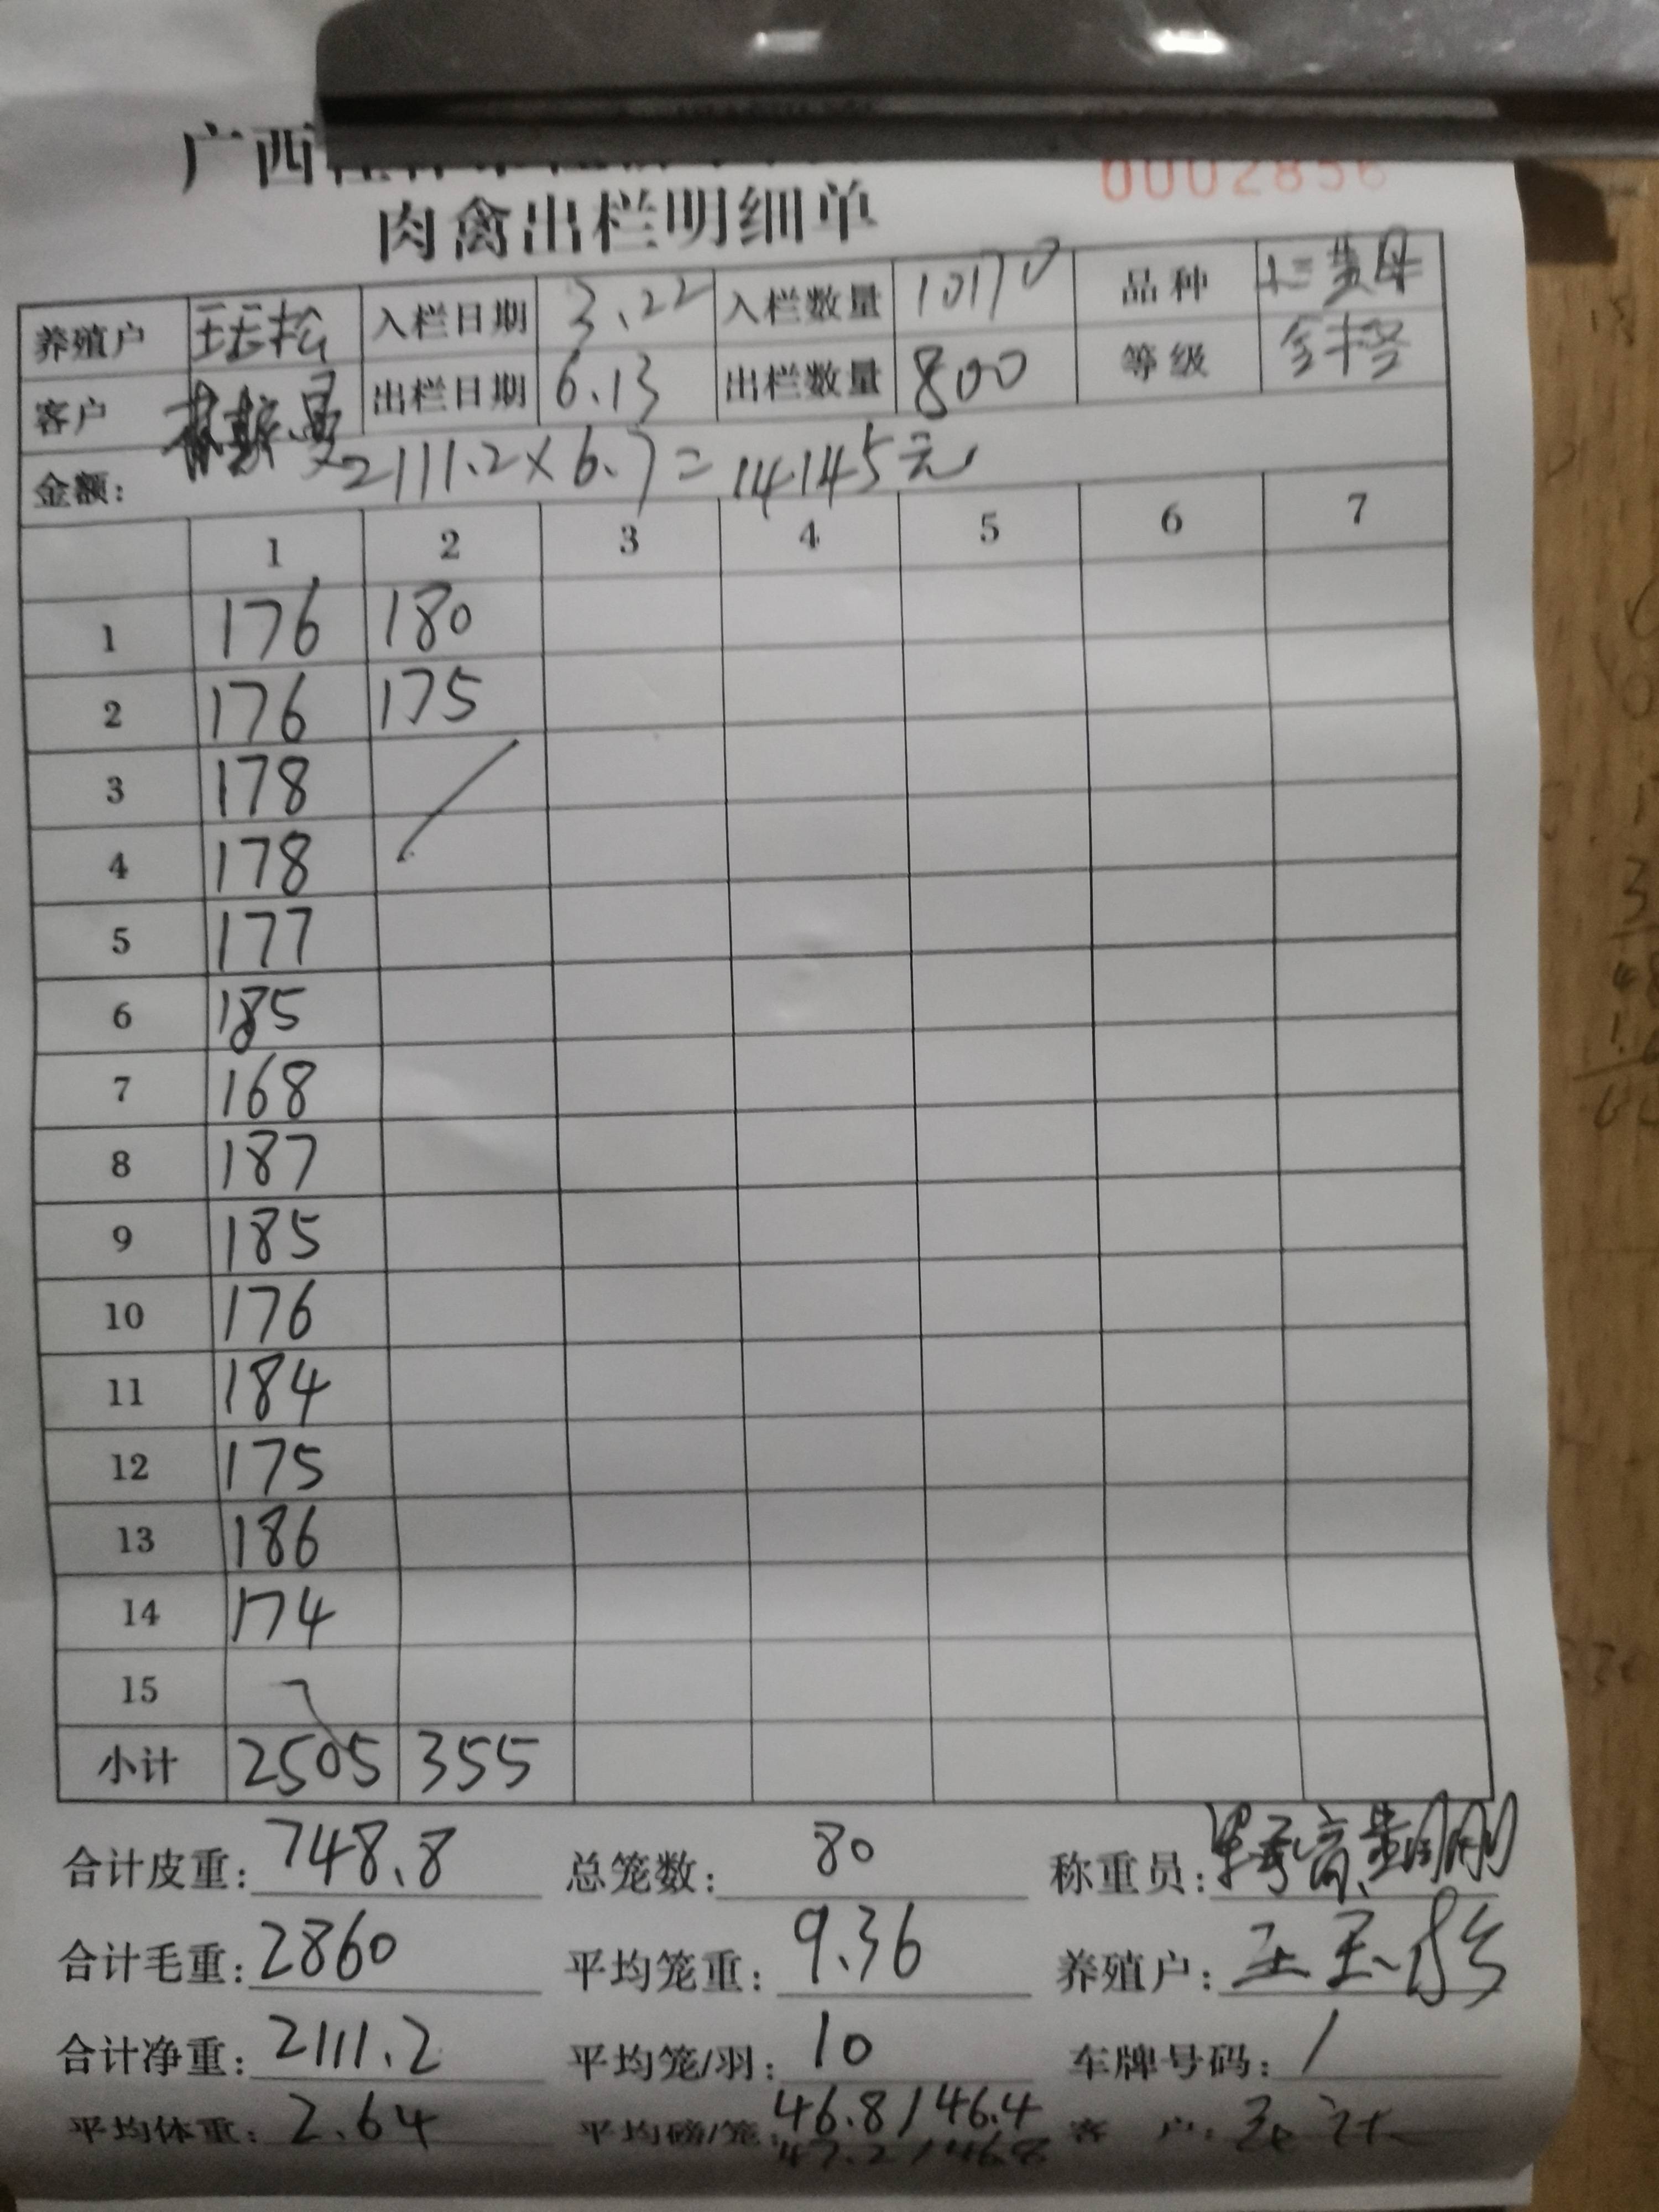 广西
0002856
肉禽出栏明细单
养殖户 入栏日期 3.22 入栏数量 10170 品种
客户 出栏日期 6.13 出栏数量 800 等级
金额: 2111.2×6.7=14145元
1 2 3 4 5 6 7
1 176 180
2 176 175
3 178
4 178
5 177
6 185
7 168
8 187
9 185
10 176
11 184
12 175
13 186
14 174
15
小计 2505 355
合计皮重: 748.8 总笼数: 80 称重员:
合计毛重: 2860 平均笼重: 9.36 养殖户:
合计净重: 2111.2 平均笼/羽: 10 车牌号码: /
平均体重: 2.64 平均磅/笼: 46.8/46.4 客 户:
47.2/46.8